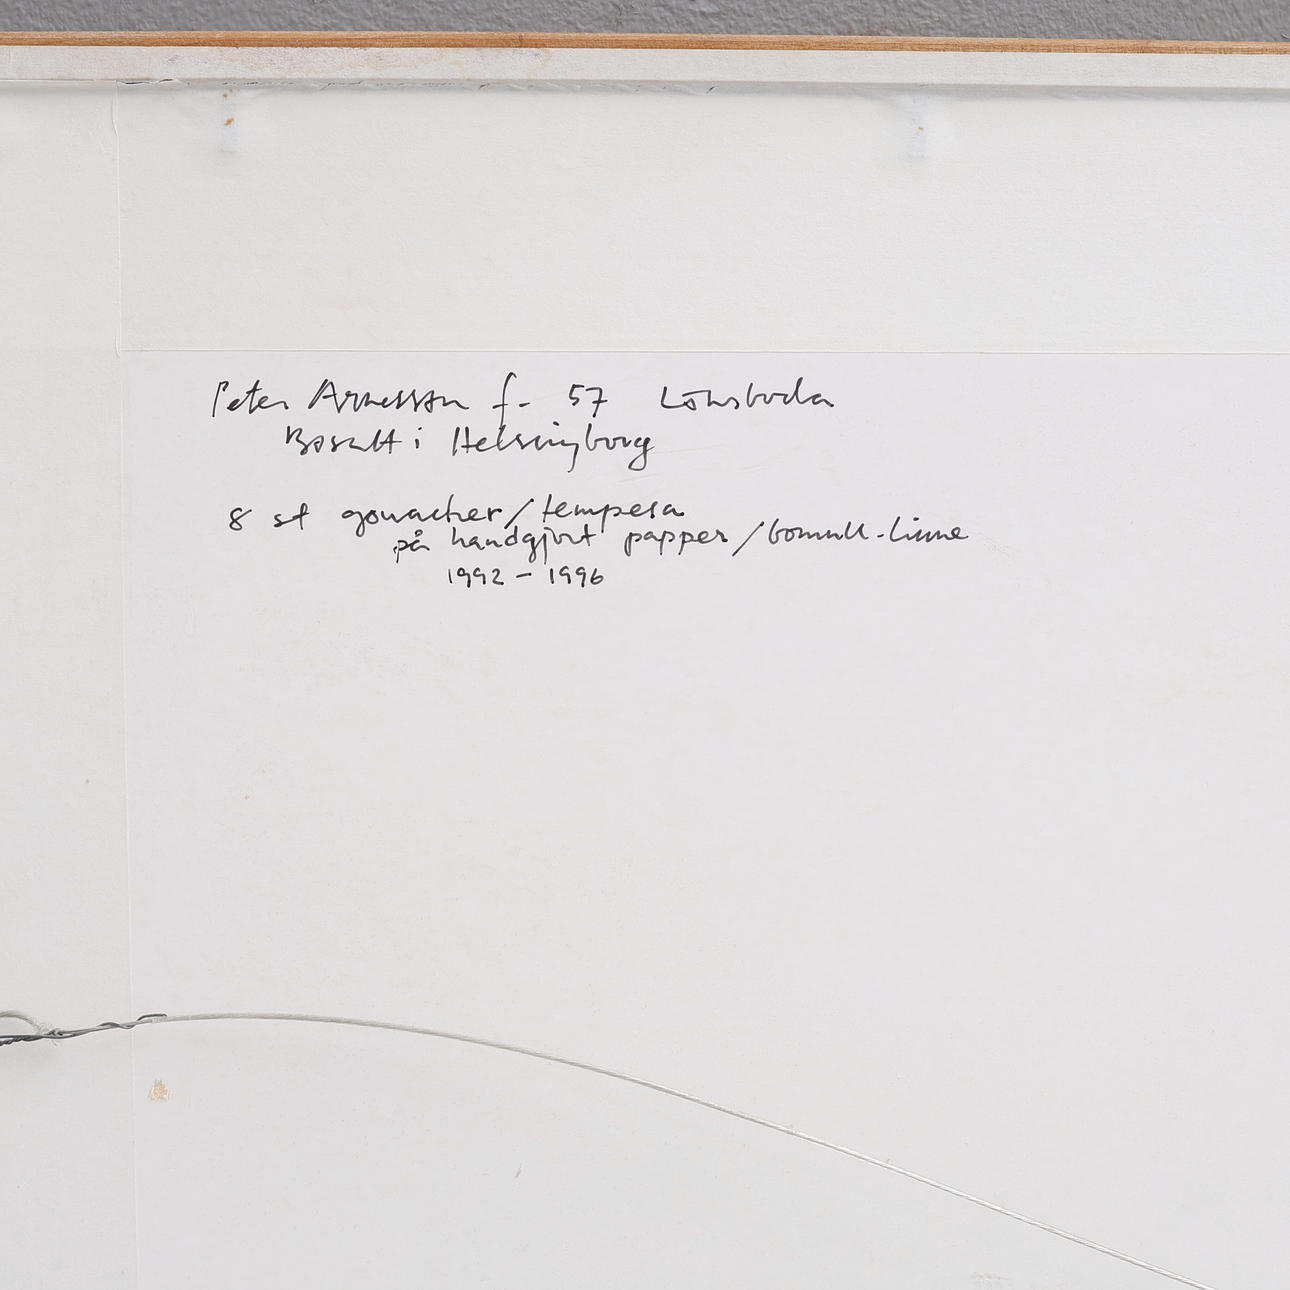 Peter Arnesson f. 57 Lönsboda
Bosatt i Helsingborg
8 st gouacher/tempera
på handgjort papper/bomull-linne
1992 - 1996